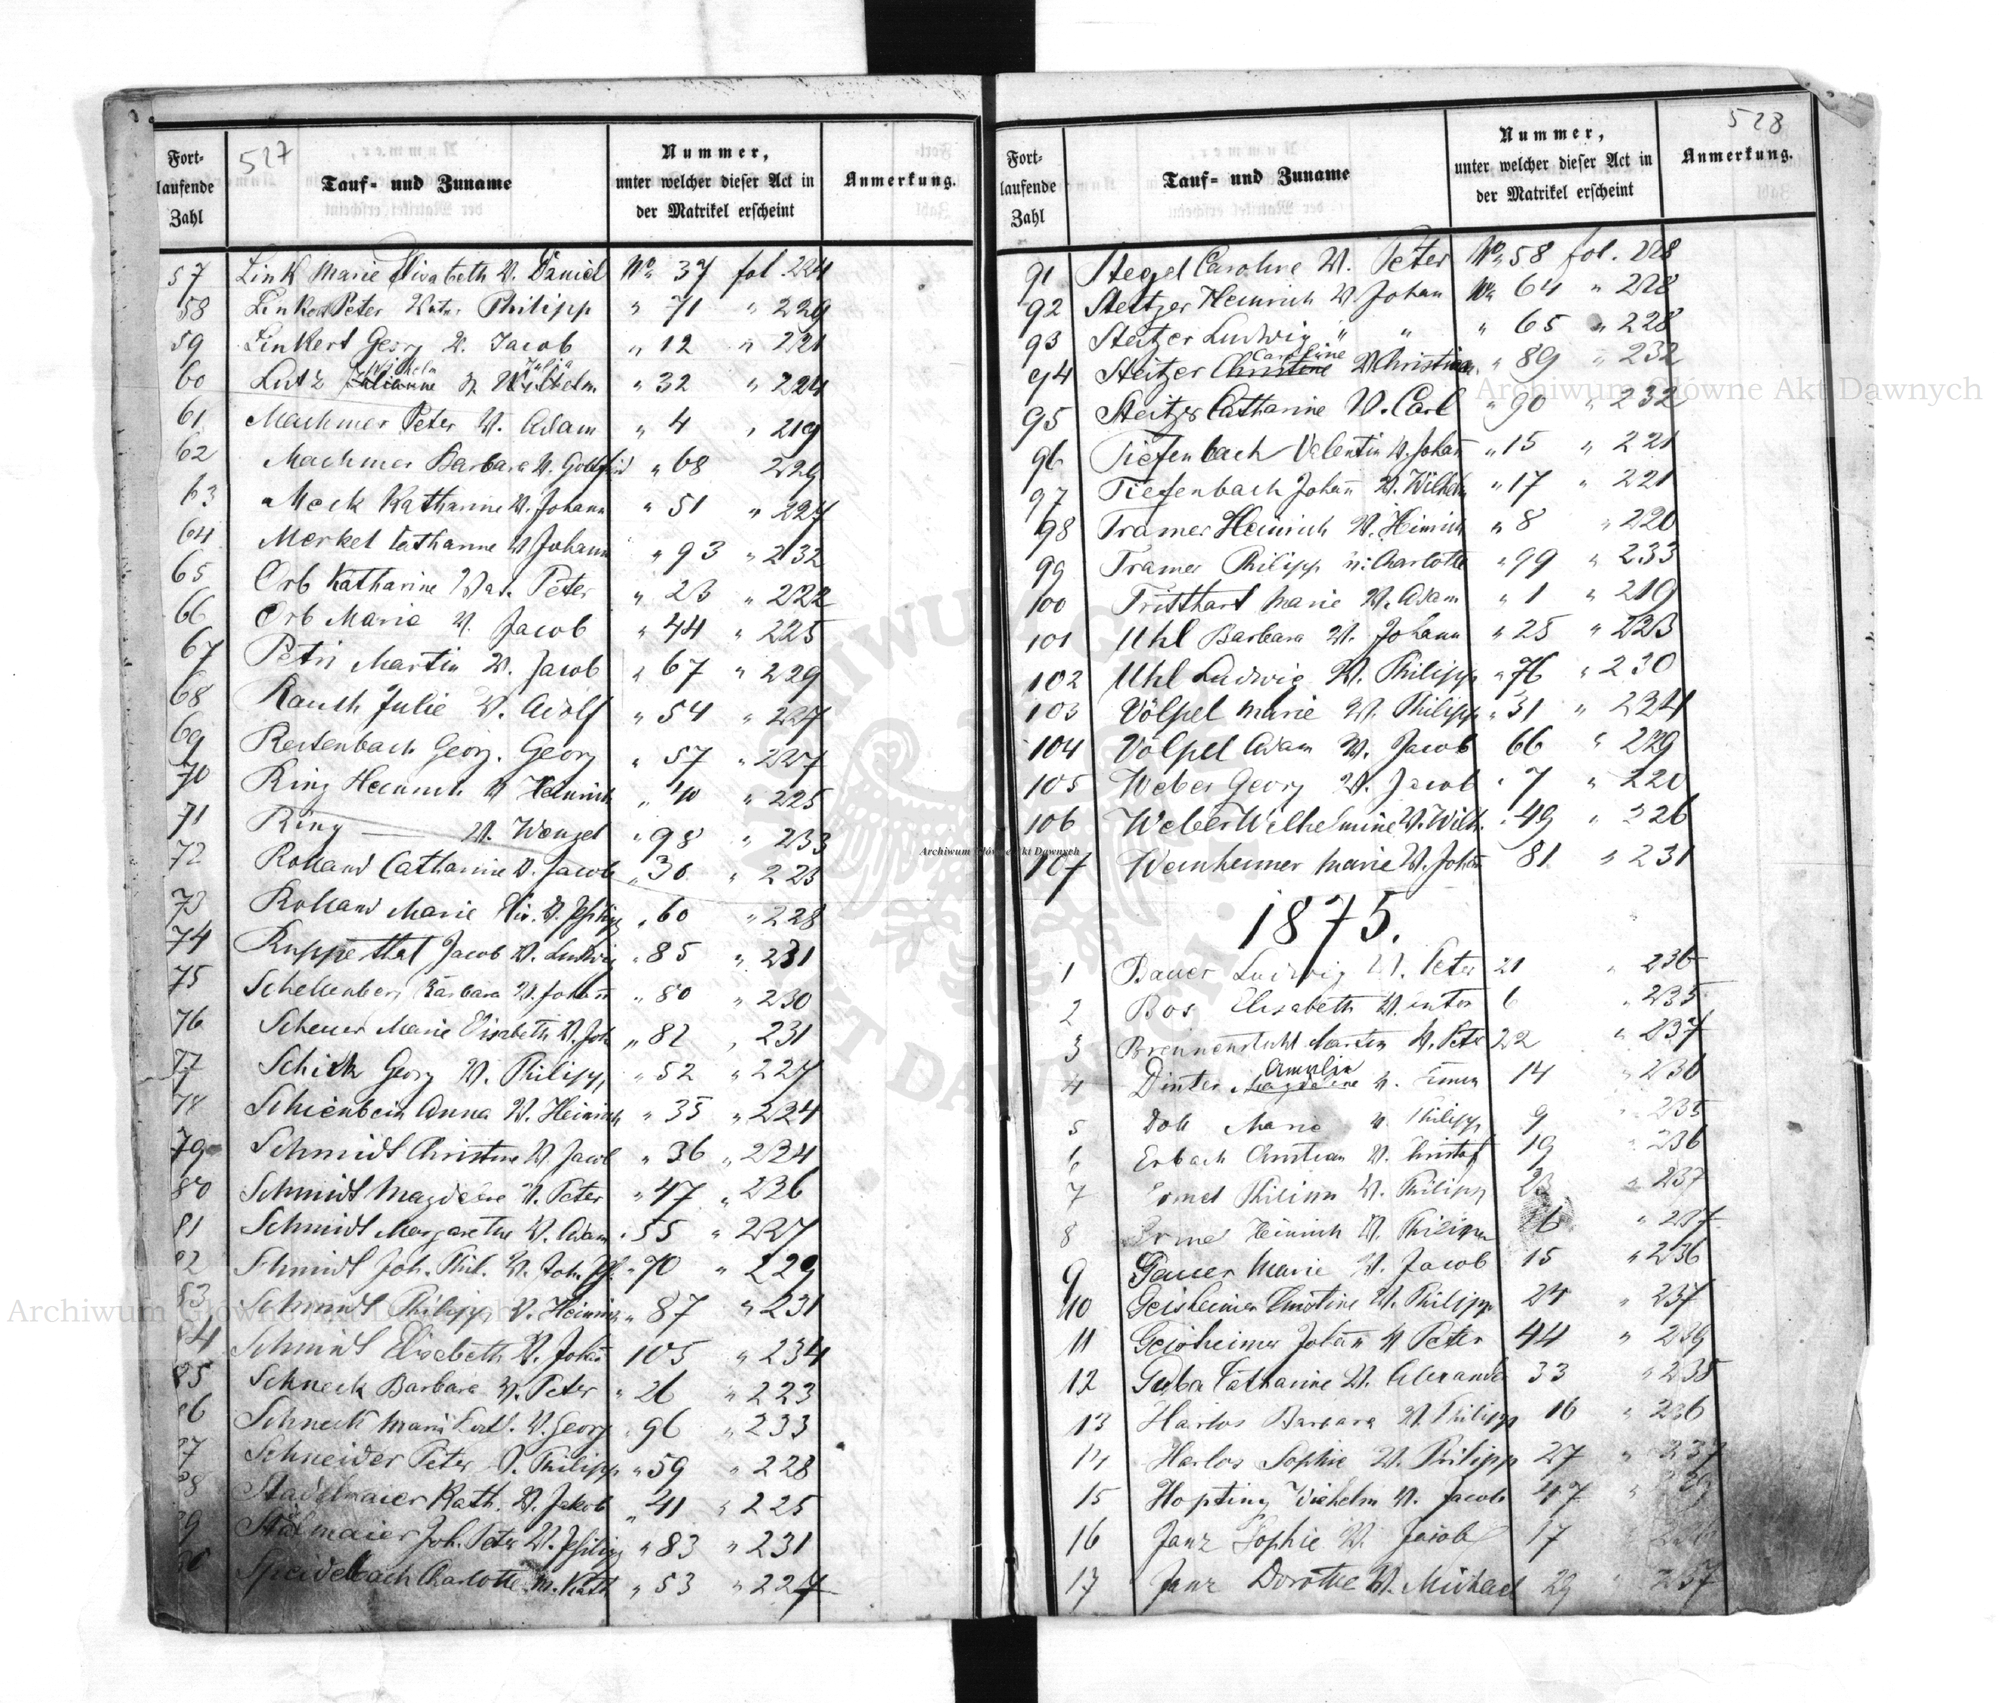 527
Fort-
laufende
Zahl
Tauf- und Zuname
Nummer,
unter welcher dieser Act in
der Matrikel erscheint
Anmerkung.
57 Link Marie Elisabeth V. Daniel No 37 fol 224
58 Linkert Peter Vater Philipp " 71 " 229
59 Linkert Georg V. Jacob " 12 " 221
60 Lutz Wilhelm Julianne V. Wilhelm " 32 " 224
61 Machmer Peter V. Adam " 4 " 219
62 Machmer Barbara V. Gottfried " 68 229
63 Meck Katharine V. Johann " 51 " 227
64 Merkel Catharine V Johann " 93 " 232
65 Orb Katharine Vat. Peter " 23 " 222
66 Orb Maria V. Jacob " 44 " 225
67 Petri Martin V. Jacob " 67 " 229
68 Rauth Julie V. Adolf " 54 " 227
69 Reitenbach Georg. Georg " 57 " 227
70 Ring Heinrich V Heinrich " 40 " 225
71 Ring — V. Wenzel " 98 " 233
72 Rolland Catharine V. Jacob " 30 " 223
73 Rolland Marie Elis. V. Philipp " 60 " 228
74 Kuppesthal Jacob V. Ludwig " 85 " 231
75 Schellenberg Barbara V. Johann " 80 " 230
76 Scheuer Marie Elisabeth V. Joh " 82 " 231
77 Schick Georg V. Philipp " 52 " 227
78 Schienbein Anna V. Heinrich " 35 " 224
79 Schmidt Christine V. Jacob " 36 " 224
80 Schmidt Magdalene V. Peter " 47 " 226
81 Schmidt Margarethe V. Adam " 55 " 227
82 Schmidt Joh. Phil. V. Joh. Ph. " 70 " 229
83 Schmidt Philipp V. Heinrich " 87 " 231
84 Schmidt Elisabeth V. Johann 105 " 234
85 Schneck Barbara V. Peter " 26 " 223
86 Schneck Marie V. Georg " 96 " 233
87 Schneider Peter V. Philipp " 59 " 228
88 Stadelmaier Kath. V. Jakob " 41 " 225
89 Stalmaier Joh. Peter V. Philipp " 83 " 231
90 Speidelbach Charlotte M. Kath " 53 " 227
528
Fort-
laufende
Zahl
Tauf- und Zuname
Nummer,
unter welcher dieser Act in
der Matrikel erscheint
Anmerkung.
91 Stegel Caroline V. Peter No 58 fol. 228
92 Steitzer Heinrich V Johan No 64 " 228
93 Steitzer Ludwig " " " 65 " 228
94 Steitzer Christine Caroline V Christian " 89 " 232
95 Steitzer Catharine V. Carl " 90 " 232
96 Tiefenbach Valentin V. Johann " 15 " 221
97 Tiefenbach Johann V. Wilhelm " 17 " 221
98 Tramer Heinrich V. Heinrich " 8 " 220
99 Tramer Philipp Charlotte " 99 " 233
100 Tritthart Marie V. Adam " 1 " 219
101 Uhl Barbara V. Johann " 25 " 223
102 Uhl Ludwig V. Philipp " 76 " 230
103 Völpel Marie V. Philipp " 31 " 224
104 Völpel Adam V. Jacob 66 " 229
105 Weber Georg V. Jacob " 7 " 220
106 Weber Wilhelmine V. Wilh. " 49 " 226
107 Weinheimer Marie V. Johann 81 " 231
1875.
1 Bauer Ludwig V. Peter 21 " 236
2 Bos Elisabeth V. 6 " 235
3 Brennenstuhl Martin V. Peter 22 " 237
4 Dinter Magdalene Amalia V. Simon 14 " 236
5 Doll Marie V. Philipp 9 " 235
6 Erbach Christian V. Christof 19 " 236
7 Ermel Philipp V. Philipp 23 " 237
8 Ermel Heinrich V. Philipp 26 " 237
9 Gauer Marie V. Jacob 15 " 236
10 Geisheimer Christine V. Philipp 24 " 237
11 Geisheimer Johann V Peter 44 " 239
12 Guba Catharine V. Alexander 33 " 238
13 Harlos Barbara V. Philipp 16 " 236
14 Harlos Sophie V. Philipp 27 " 237
15 Hopting Wilhelm V. Jacob 47 " 239
16 Janz Sophie V. Jacob 17
17 Janz Dorothe V. Michael 29 " 237
Archiwum Główne Akt Dawnych
Archiwum Główne Akt Dawnych
Archiwum Główne Akt Dawnych